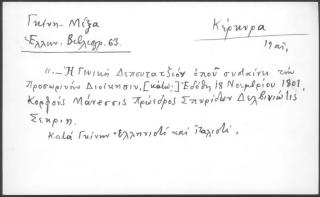 Γκίνη - Μέξα
Ἑλλην. Βιβλιογρ. 63.
Κέρκυρα
19 αἰ.
«.— Ἡ Γενική Δεπουτατζιόν ὁποῦ συσταίνει τήν
Προσωρινήν Διοίκησιν, [κάτω:] Ἐδόθη 18 Νοεμβρίου 1801
Κορφούς Μάνεσσις Πρωτόρος Σπυρίδων Δελβινιώτις
Σεκρ.»
Κατά Γκίνην - Ἑλληνιστί καί Ἰταλιστί.